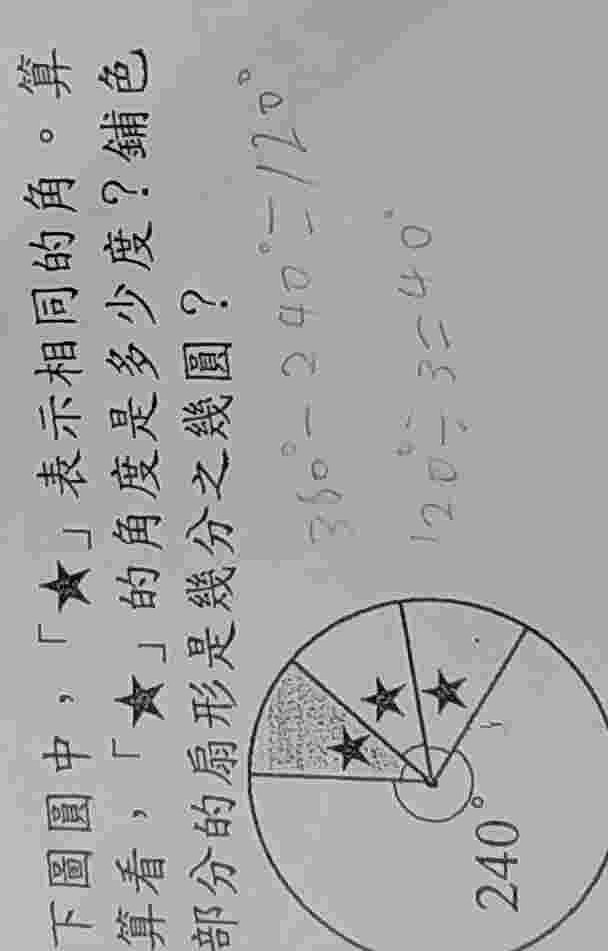 下圖圓中,「★」表示相同的角。算
算看,「★」的角度是多少度?鋪色
部分的扇形是幾分之幾圓?
360°-240°=120°
120°÷3=40°
240°